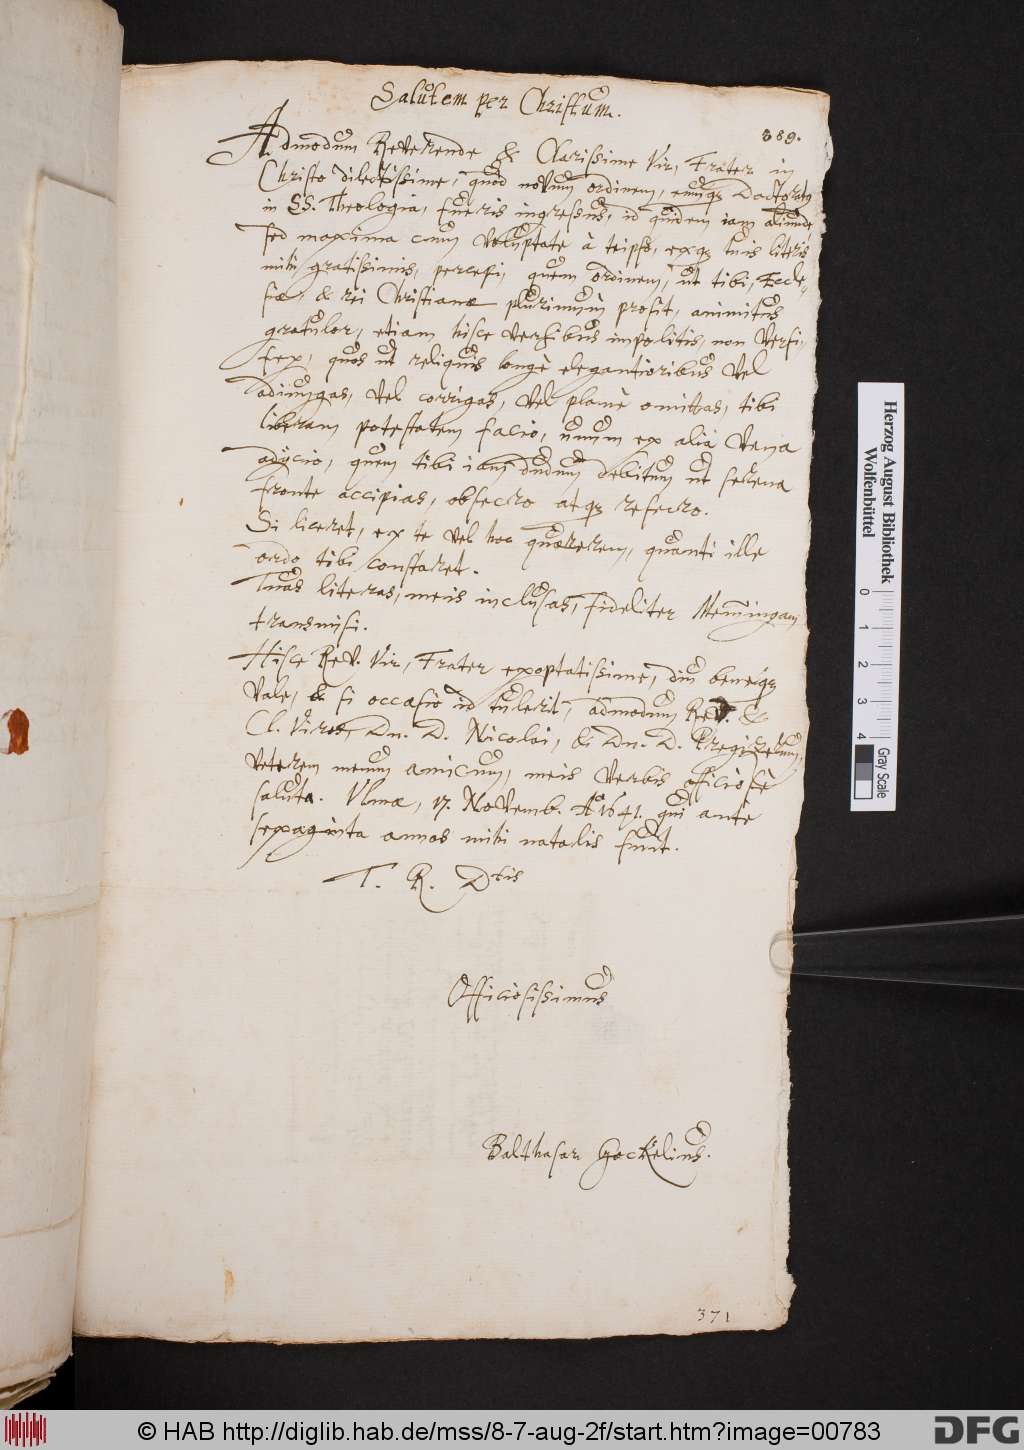 Salutem per Christum.
389.
Admodum Reverende & Clarissime Vir, Frater in
Christo dilectissime, quod novum ordinem, eumq; Doctorum
in SS. Theologia, fueris ingressus, id quidem iam aliunde,
sed maxima cum voluptate à teipso, exq; tuis literis
mihi gratissimis, percepi, quem ordinem, ut tibi, Eccle-
siæ, & rei Christianæ plurimùm prosit, animitus
gratulor, etiam hisce versibus impolitis, non versi-
fex, quos ut reliquis longè elegantioribus vel
adiungas, vel corrigas, vel planè omittas, tibi
liberam potestatem facio, unum ex aliâ vena
adijcio, quem tibi iam dudum debitum ut serena
fronte accipias, obsecro atq; refecro.
Si liceret, ex te vel hoc quærerem, quanti ille
ordo tibi constaret.
Tuas literas, meis inclusas, fideliter Memingam
transmisi.
Hisce Rev. Vir, Frater exoptatissime, diu beneq;
Vale, & si occasio id tulerit, admodum Rev. &
Cl. Viros, Dn. D. Nicolai, & Dn. D. Pregizerum,
veterem meum amicum, meis verbis officiosè
saluta. Ulmæ, 17. Novemb. Aº 1641. qui ante
sexaginta annos mihi natalis fuit.
T. R. Dtis
Officiosissimus
Balthasar Gockelius.
371
Herzog August Bibliothek
Wolfenbüttel
0 1 2 3 4
Gray Scale
© HAB http://diglib.hab.de/mss/8-7-aug-2f/start.htm?image=00783
DFG